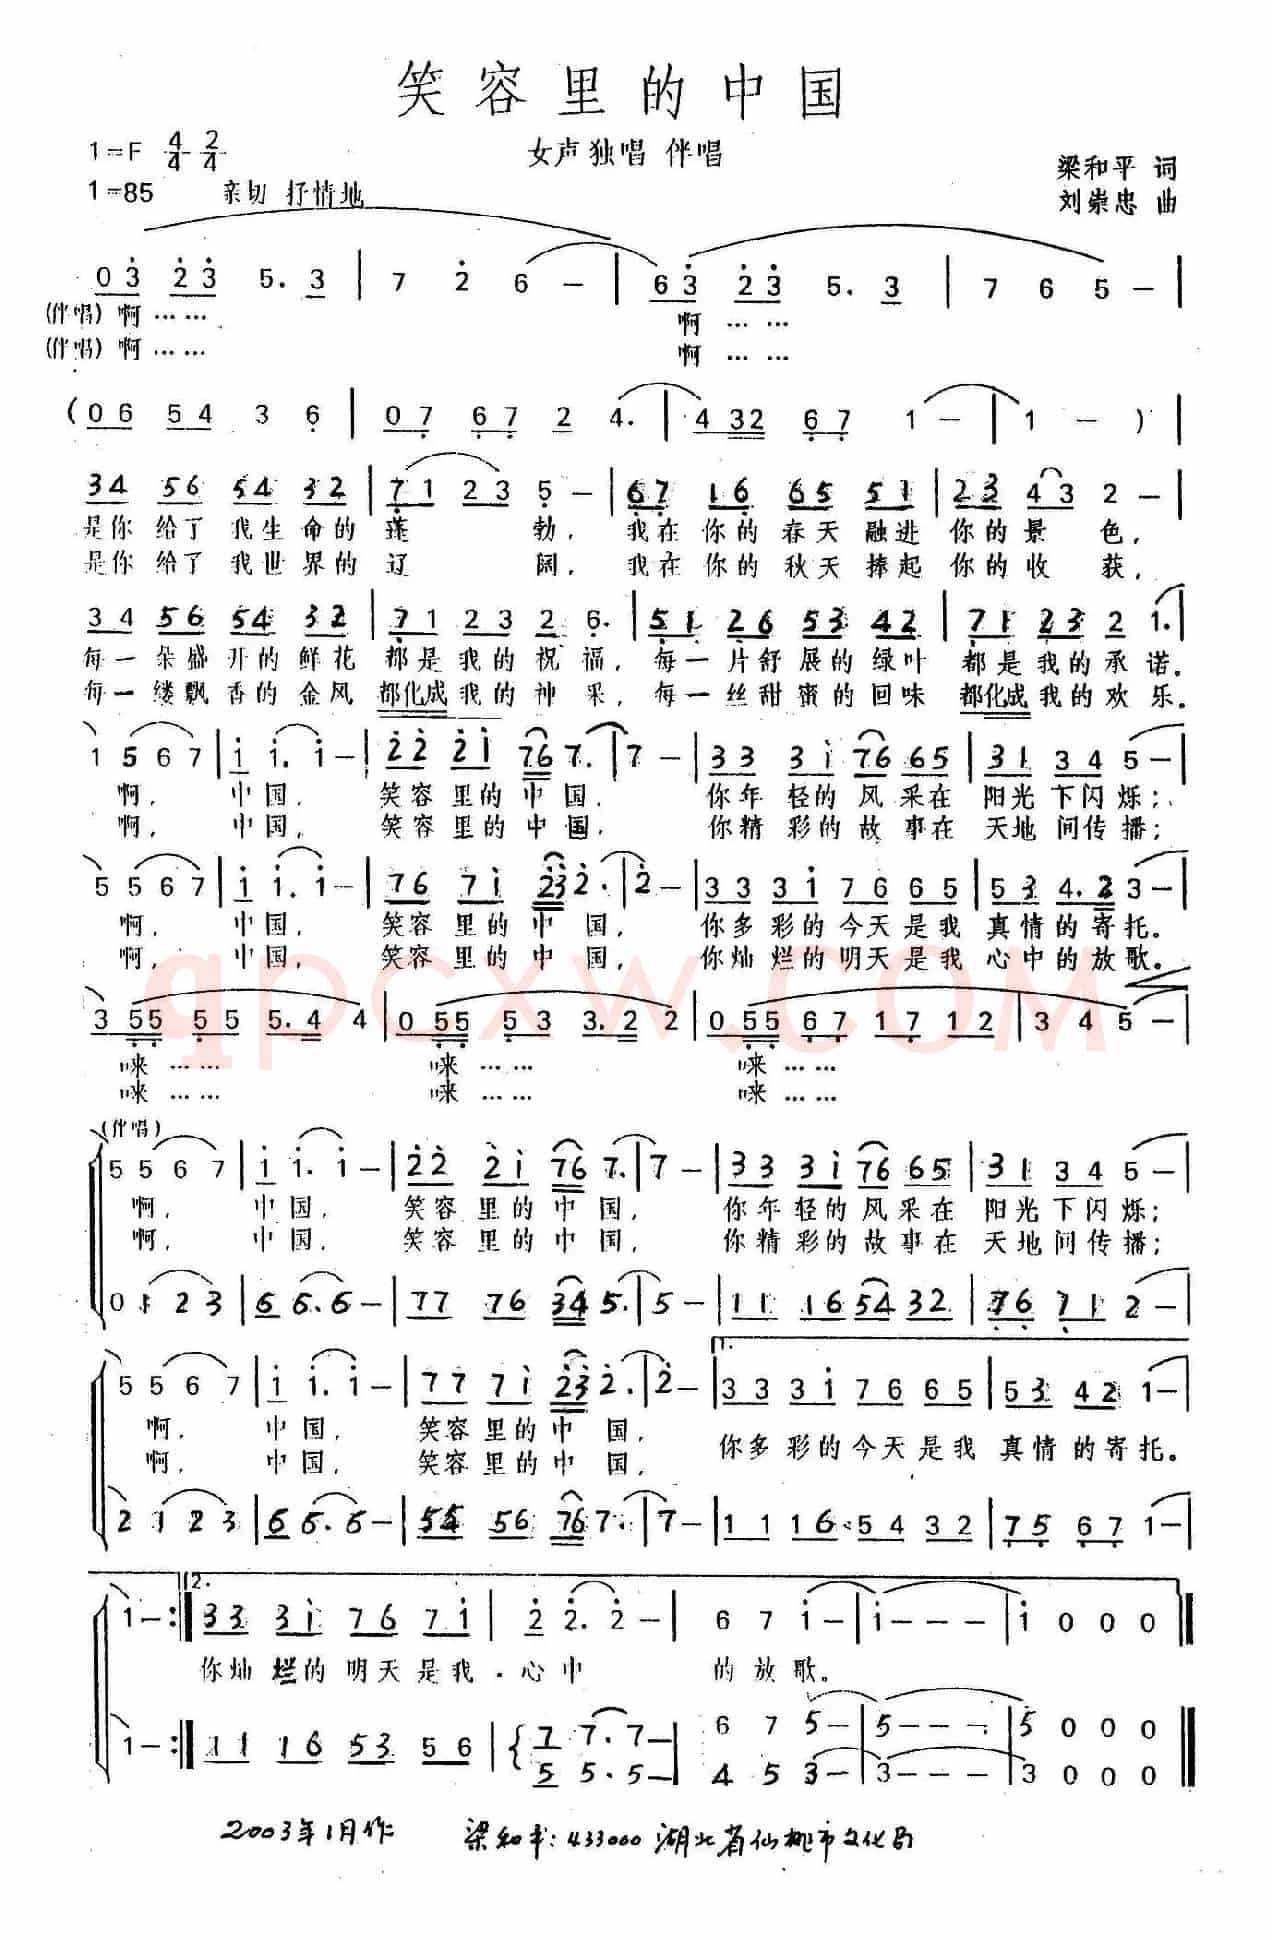 笑容里的中国
1=F 4/4 2/4
女声独唱 伴唱
梁和平 词
1=85 亲切 抒情地
刘崇忠 曲
0 3 2 3 5. 3 | 7 2 6 — | 6 3 2 3 5. 3 | 7 6 5 — |
(伴唱) 啊…… 啊……
(伴唱) 啊…… 啊……
( 0 6 5 4 3 6 | 0 7 6 7 2 4. | 4 3 2 6 7 1 — | 1 — ) |
3 4 5 6 5 4 3 2 | 7 1 2 3 5 — | 6 7 1 6 6 5 5 1 | 2 3 4 3 2 — |
是你 给了 我生 命的 蓬 勃, 我在 你的 春天 融进 你的 景 色,
是你 给了 我世 界的 辽 阔, 我在 你的 秋天 捧起 你的 收 获,
3 4 5 6 5 4 3 2 | 7 1 2 3 2 6. | 5 1 2 6 5 3 4 2 | 7 1 2 3 2 1. |
每一 朵盛 开的 鲜花 都是 我的 祝 福, 每一 片舒 展的 绿叶 都是 我的 承 诺。
每一 缕飘 香的 金风 都化成 我的 神 采, 每一 丝甜 蜜的 回味 都化成 我的 欢 乐。
1 5 6 7 | 1 1. 1 — | 2 2 2 1 7 6 7. | 7 — | 3 3 3 1 7 6 6 5 | 3 1 3 4 5 — |
啊, 中国, 笑容 里的 中 国, 你年 轻的 风 采在 阳光 下闪 烁;
啊, 中国, 笑容 里的 中 国, 你精 彩的 故 事在 天地 间传 播;
5 5 6 7 | 1 1. 1 — | 7 6 7 1 2 3 2. | 2 — | 3 3 3 1 7 6 6 5 | 5 3 4. 2 3 — |
啊, 中国, 笑容 里的 中 国, 你多 彩的 今天 是我 真情 的寄 托。
啊, 中国, 笑容 里的 中 国, 你灿 烂的 明天 是我 心中 的放 歌。
qpcxw.com
3 5 5 5 5 5. 4 4 | 0 5 5 5 3 3. 2 2 | 0 5 5 6 7 1 7 1 2 | 3 4 5 — |
唻…… 唻…… 唻……
唻…… 唻…… 唻……
(伴唱)
5 5 6 7 | 1 1. 1 — | 2 2 2 1 7 6 7. | 7 — | 3 3 3 1 7 6 6 5 | 3 1 3 4 5 — |
啊, 中国, 笑容 里的 中 国, 你年 轻的 风 采在 阳光 下闪 烁;
啊, 中国, 笑容 里的 中 国, 你精 彩的 故 事在 天地 间传 播;
0 1 2 3 | 6 6. 6 — | 7 7 7 6 3 4 5. | 5 — | 1 1 1 6 5 4 3 2 | 7 6 7 1 2 — |
1.
5 5 6 7 | 1 1. 1 — | 7 7 7 1 2 3 2. | 2 — | 3 3 3 1 7 6 6 5 | 5 3 4 2 1 — |
啊, 中国, 笑容 里的 中 国, 你多 彩的 今天 是我 真情 的寄 托。
啊, 中国, 笑容 里的 中 国,
2 1 2 3 | 6 6. 6 — | 5 5 5 6 7 6 7. | 7 — | 1 1 1 6 5 4 3 2 | 7 5 6 7 1 — |
2.
1 — :| 3 3 3 1 7 6 7 1 | 2 2. 2 — | 6 7 1 — | 1 — — — | 1 0 0 0 ||
你灿 烂的 明天 是我 心中 的放歌。
1 — :| 1 1 1 6 5 3 5 6 | 7 7. 7 — | 6 7 5 — | 5 — — — | 5 0 0 0 ||
5 5. 5 — | 4 5 3 — | 3 — — — | 3 0 0 0
2003年1月作 梁和平: 433000 湖北省仙桃市文化局